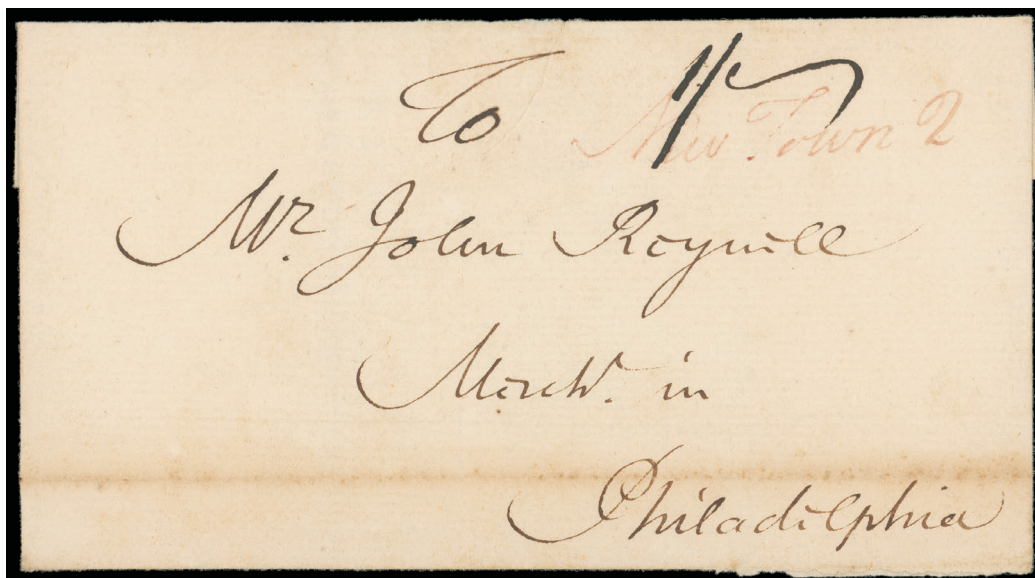 To
New Town 2
Mr. John Reynell
Mercht. in
Philadelphia